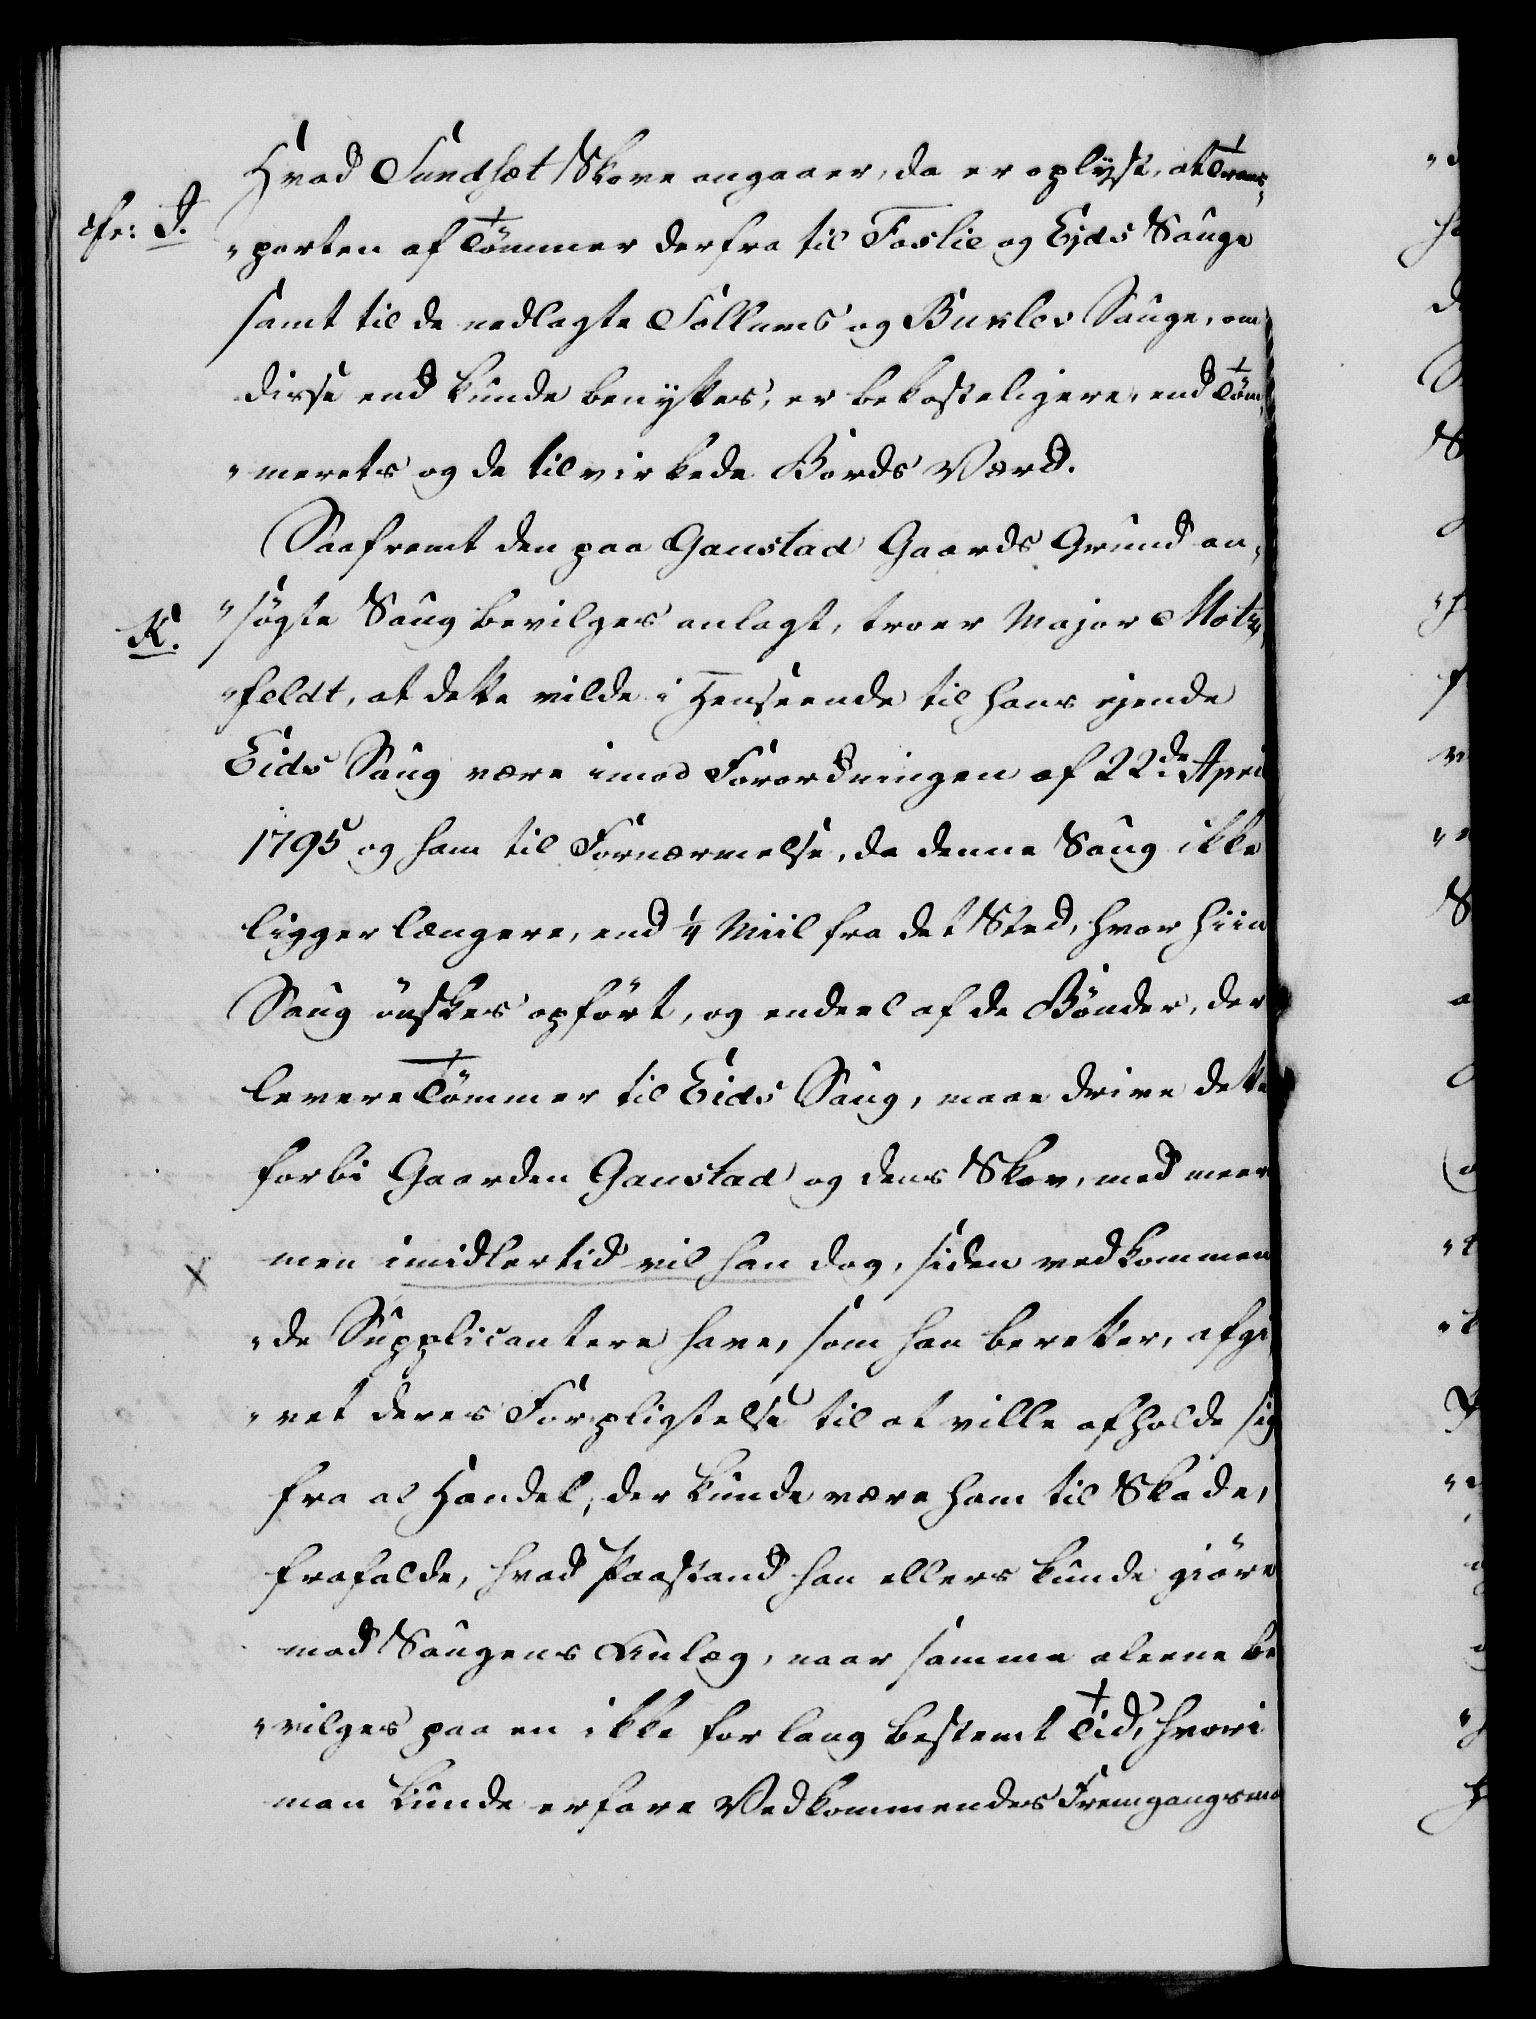 Hvad Sundsæt Skove angaaer, da er oplyst, at Trans¬
cfr: J.
"porten af Tömmer derfra til Foslie og Ejds Sauge
samt til de nedlagte Sollums og Burlev Sauge, om
disse end kunde benyttes, er bekosteligere, end Töm¬
"merets og de tilvirkede Bords Værd.
Saafremt den paa Ganstad Gaards Grund an¬
K.
"søgte Saug bevilges anlagt, troer Major Motz¬
"feldt, at dette vilde i Henseende til hans ejende
Eids Saug være imod Forordningen af 22de April
1795 og ham til Fornærmelse, da denne Saug ikke
ligger længere, end 1/4 Miil fra det Sted, hvor hiin
Saug önskes opfört, og endeel af de Bönder, der
levere Tömmer til Eids Saug, maae drive dette
forbi Gaarden Ganstad og dens Skov, med meere
x
men imidlertid vil han dog, siden vedkommen
"de Supplicantere have, som han beretter, afgi
"vet deres Forpligtelse til at ville afholde sig
fra al Handel, der kunde være ham til Skade,
frafalde, hvad Paastand han ellers kunde giöre
mod Saugens Anlæg, naar samme aleene be
"vilges paa en ikke for lang bestemt Tid, hvori
man kunde erfare Vedkommendes Fremgangsma